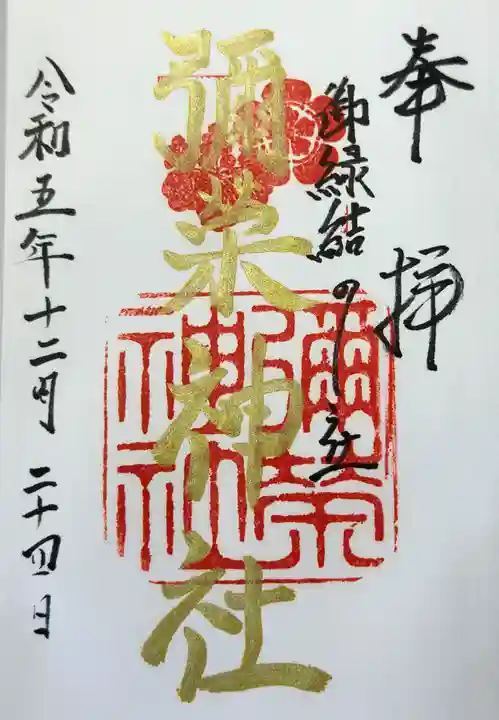 奉拝
御縁結の社
彌栄神社
彌榮
神社
令和五年十二月二十四日